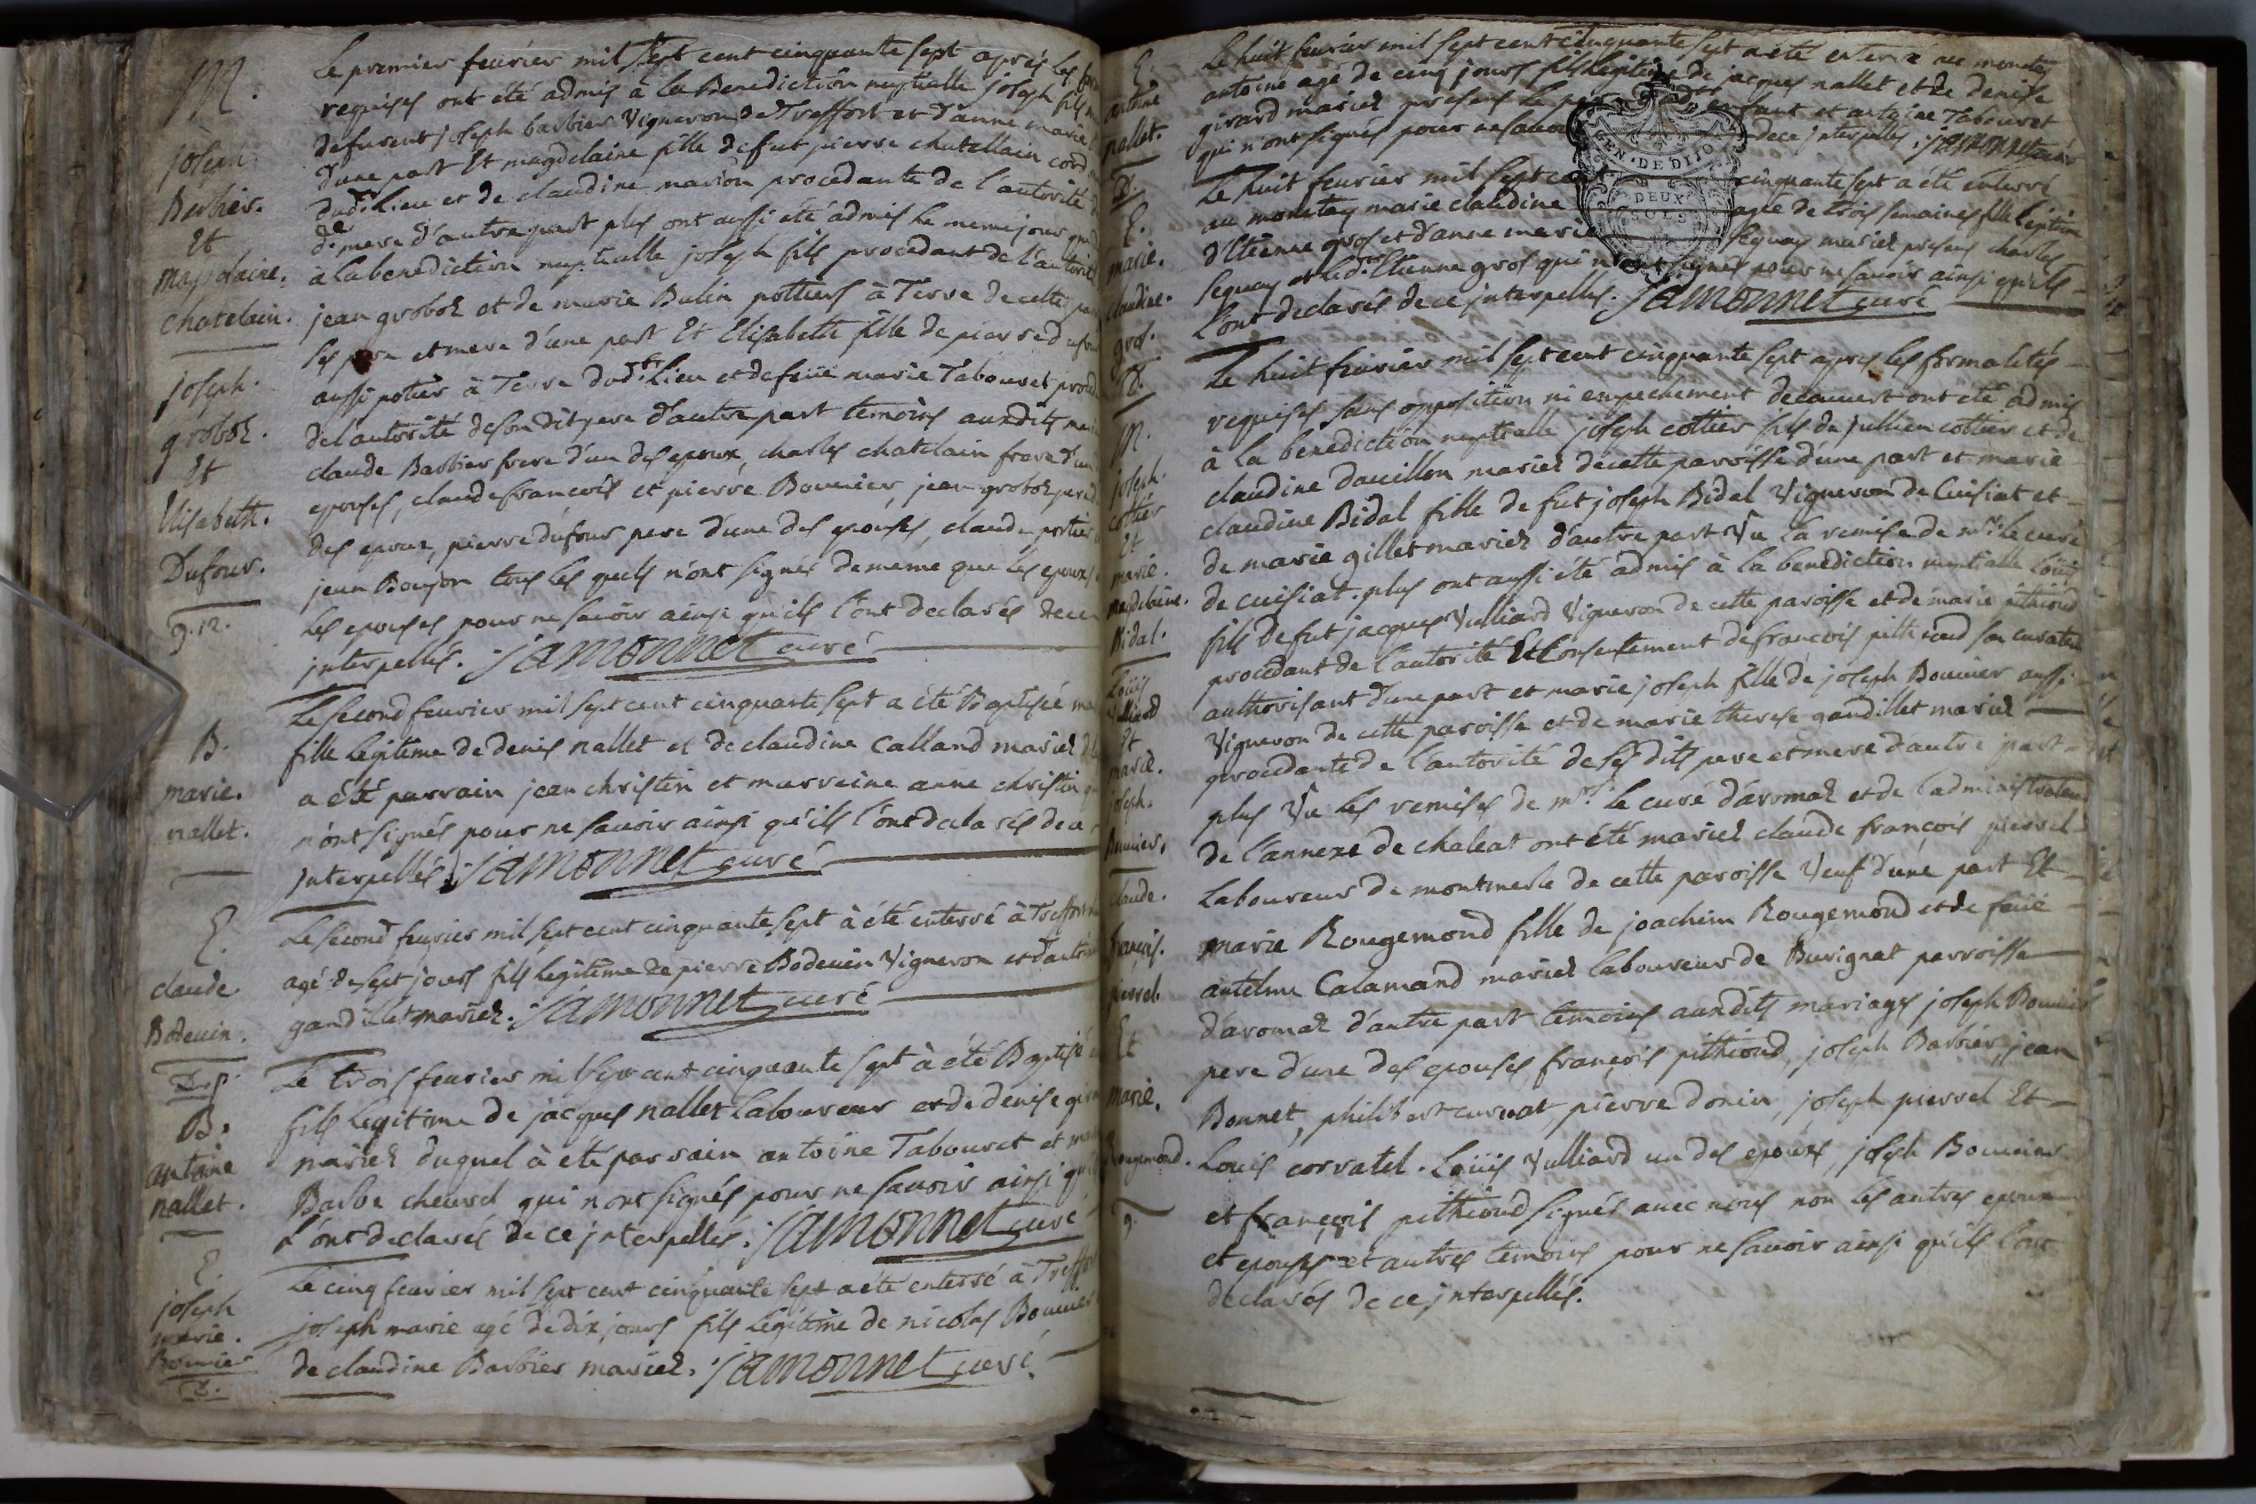 M.
joseph
Barbier.
Et
magdelaine.
chatelain.
Le premier fevrier mil sept cent cinquante sept après les
requises ont été admis à la Benediction nuptialle joseph fils
defunt joseph barbier Vigneron de Treffort et d'anne marie
d'une part Et magdelaine fille de fut pierre chatellain cord
dudt Lieu et de claudine marion procedante de l'autorité
de mere d'autre part plus ont aussi été admis le meme jour
à la benediction nuptialle joseph fils procedant de l'autorité
jean groboz et de marie Balin pottiers à Terre de cette
ses pere et mere d'une part Et Elisabeth fille de pierre dufour
aussi potier à Terre dudt Lieu et de feüe marie Tabouret
de l'autorité de son dit pere d'autre part temoins auxdits
claude Barbier frere d'un des epoux, charles chatelain frere d'une
epouses, claude francois et pierre Bouvier, jean groboz pere
des epoux, pierre dufour pere d'une des epouses, claude
jean Boujon tous les quels n'ont signés de même que les epoux
les epouses pour ne savoir ainsi qu'ils l'ont declarés de ce
interpellés. jamonnet curé
joseph.
groboz.
Et
Elisabeth.
Dufour.
g. 12.
B.
marie.
nallet.
Le second fevrier mil sept cent cinquante sept a été Baptisée
fille legitime de denis nallet et de claudine Calland mariez
a été parrain jean christin et marreine anne christin
n'ont signés pour ne savoir ainsi qu'ils l'ont declarés de ce
interpellés. jamonnet curé
E.
claude
Bodevin.
Le second fevrier mil sept cent cinquante sept à été enterré à Treffort
agé de sept jours fils legitime de pierre Bodevin Vigneron et
gandillet mariez. jamonnet curé
B.
antoine
nallet.
Le trois fevrier mil sept cent cinquante sept à été Baptisé
fils legitime de jacques nallet Laboureur et de denise
mariez duquel à été parrain antoine Tabouret et
Barbe cheurel qui n'ont signés pour ne savoir ainsi
l'ont declarés de ce interpellés. jamonnet curé
E.
joseph
marie.
Bouvier
Le cinq fevrier mil sept cent cinquante sept a été enterré à Treffort
joseph marie agé de dix jours fils legitime de nicolas Bouvier
de claudine Barbier mariez. jamonnet curé.
E.
antoine
nallet.
Le huit fevrier mil sept cent cinquante sept a été enterré au monetay
antoine agé de cinq jours fils legitime de jacques nallet et de denise
girard mariez presens le enfant et antoine Tabouret
qui n'ont signés pour ne savoir de ce interpellés. jamonnet curé
GEN. DE DIJO
DEUX
SOLS
E.
marie.
claudine.
gros.
Le huit fevrier mil sept cent cinquante sept a été enterré
au monetay marie claudine agée de trois semaines fille legitime
d'Etienne gros et d'anne marie sequay mariez presens charles
sequay et ledt Etienne gros qui n'ont signés pour ne savoir ainsi qu'ils
l'ont declarés de ce interpellés. jamonnet curé
M.
joseph.
cottier
Et
marie.
claudine.
Bidal.
Le huit fevrier mil sept cent cinquante sept apres les formalités
requises sans opposition ni empechement decouvert ont été admis
à la benediction nuptialle joseph cottier fils de jullien cottier et de
claudine dauillon mariez de cette paroisse d'une part et marie
claudine Bidal fille de fut joseph Bidal Vigneron de Cuisiat et
de marie gillet mariez d'autre part Vu la remise de mr. le curé
de cuisiat. plus ont aussi été admis à la benediction nuptialle Loüis
fils de fut jacques Vulliard Vigneron de cette paroisse et de marie pithioud
procedant de l'autorité Et Consentement de francois pithioud son curateur
authorisant d'une part et marie joseph fille de joseph Bouvier aussi
Vigneron de cette paroisse et de marie therese gandillet mariez
procedante de l'autorité de ses dits pere et mere d'autre part
plus Vu les remises de mr. le curé d'aromaz et de l'administrateur
de l'annexe de chaleat ont été mariez claude françois pierrel
Laboureur de montmerle de cette paroisse Veuf d'une part Et
marie Rougemond fille de joachim Rougemond et de feüe
antelme Calamand mariez laboureur de Burignat parroisse
d'aromaz d'autre part temoins auxdits mariages joseph Bouvier
pere d'une des epouses, françois pithioud, joseph Barbier, jean
Bonnet, philibert curvat, pierre donin, joseph pierrel Et
Louis corvatel. Loüis Vulliard un des epoux, joseph Bouvier
et françois pithioud signés avec nous non les autres epoux
et epouses et autres temoins pour ne savoir ainsi qu'ils l'ont
declarés de ce interpellés.
Loüis
Vulliard
Et
marie.
joseph.
Bouvier.
claude.
françois.
pierrel.
Et
marie.
Rougemond.
9.